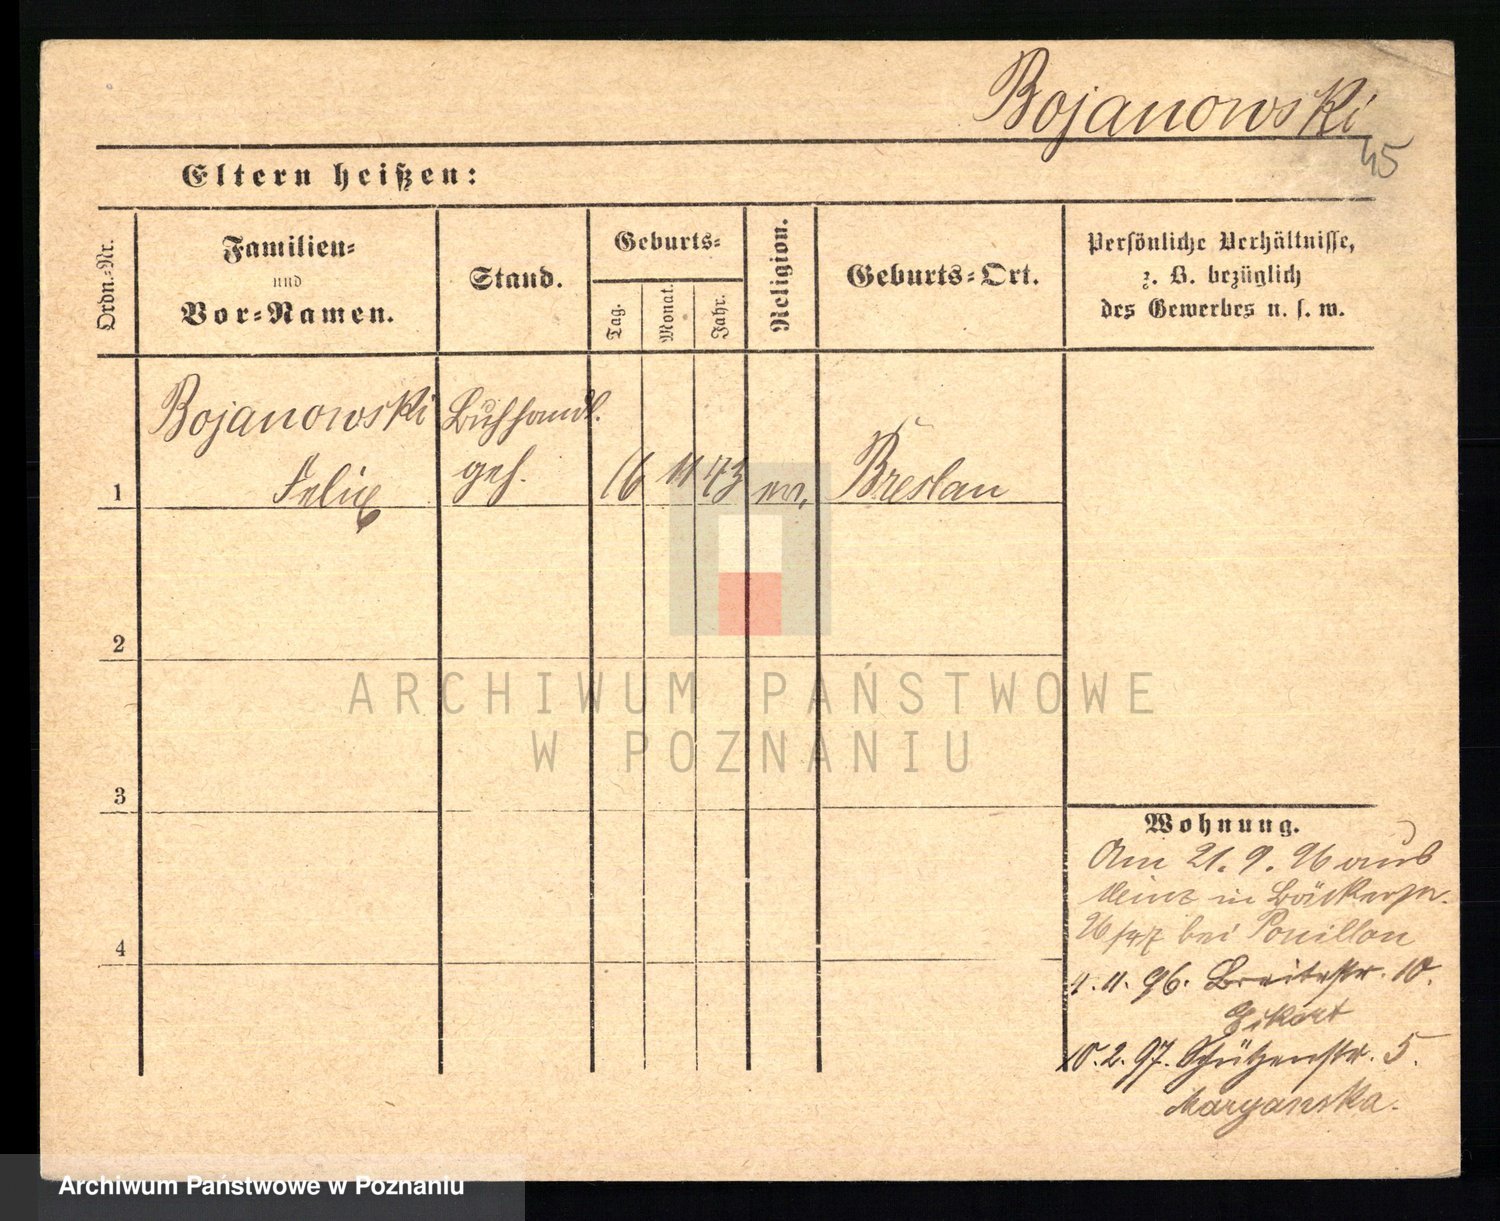 Bojanowski
45
Eltern heißen:
Ordn.-Nr.
Familien-
und
Vor-Namen.
Stand.
Geburts-
Tag.
Monat.
Jahr.
Religion.
Geburts-Ort.
Persönliche Verhältnisse,
z. B. bezüglich
des Gewerbes u. s. w.
Bojanowski Buchhandl.
1 Felix geh. 16 11 73 ev. Breslau
2
3
4
Wohnung.
Am 21.9.96 aus
Mainz in Bäckerstr.
26/27 bei Pouillon
1.11.96. Breitestr. 10.
10.2.97. Schützenstr. 5.
Maryanska.
ARCHIWUM PAŃSTWOWE
W POZNANIU
Archiwum Państwowe w Poznaniu